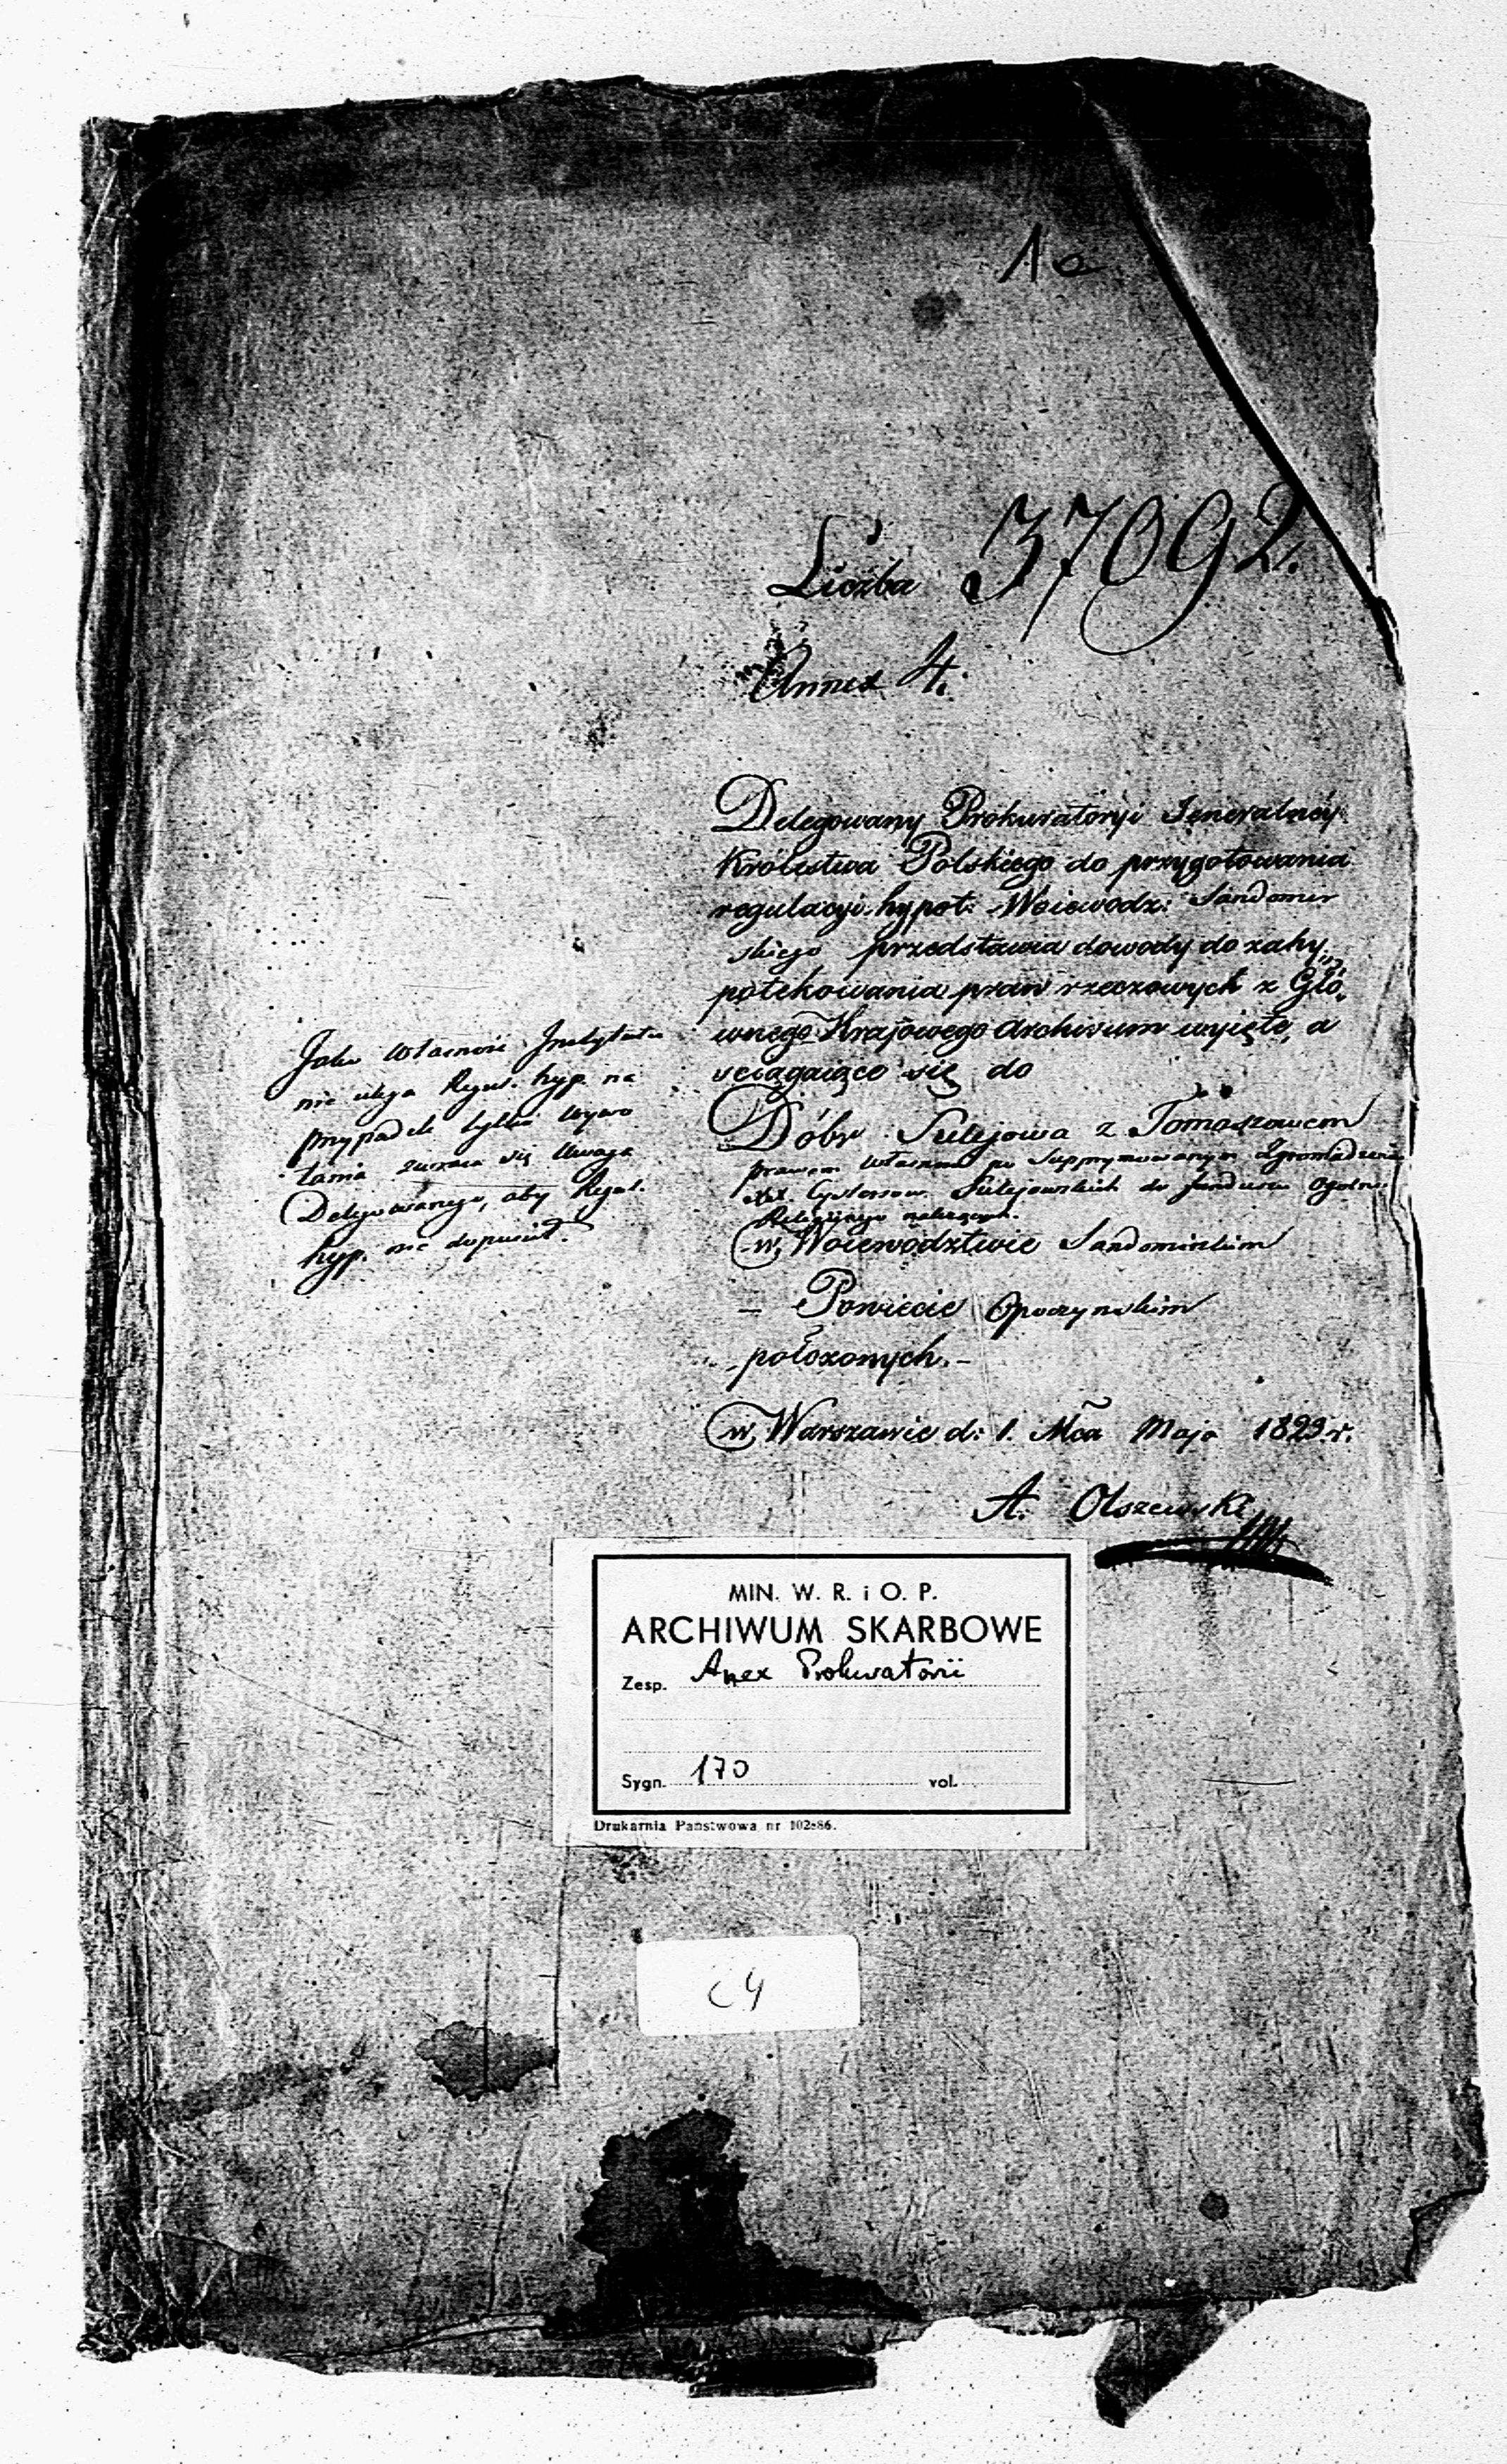 1a
Liczba 37092.
Annex 4.
Delegowany Prokuratoryi Jeneralney
Królestwa Polskiego do przygotowania
regulacyi hypot: Woiewodz: Sandomir
skiego przedstawia dowody do zahy„
potekowania praw rzeczowych z Głó„
wnego Krajowego Archivum wyięte, a
sciągaiące się do
Dóbr Sulejowa z Tomaszowem
prawem własności po Supprymowanym Zgromadzeniu
XX. Cystersow Sulejowskich do funduszu Ogolno
Religijnego należących.
w Woiewództwie Sandomirskim
– Powiecie Opoczynskim
położonych.–
w Warszawie d: 1. Mca Maja 1823.r.
A. Olszewski
Jako własność Instytutu
nie ulega Regul. hyp. na
przypadek tylko wywo
łania zwraca się uwaga
Delegowanego, aby Regul.
hyp. nie dopuścił.
MIN. W. R. i O. P.
ARCHIWUM SKARBOWE
Zesp. Anex Prokuratorii
Sygn. 170 vol.
Drukarnia Państwowa nr 102886.